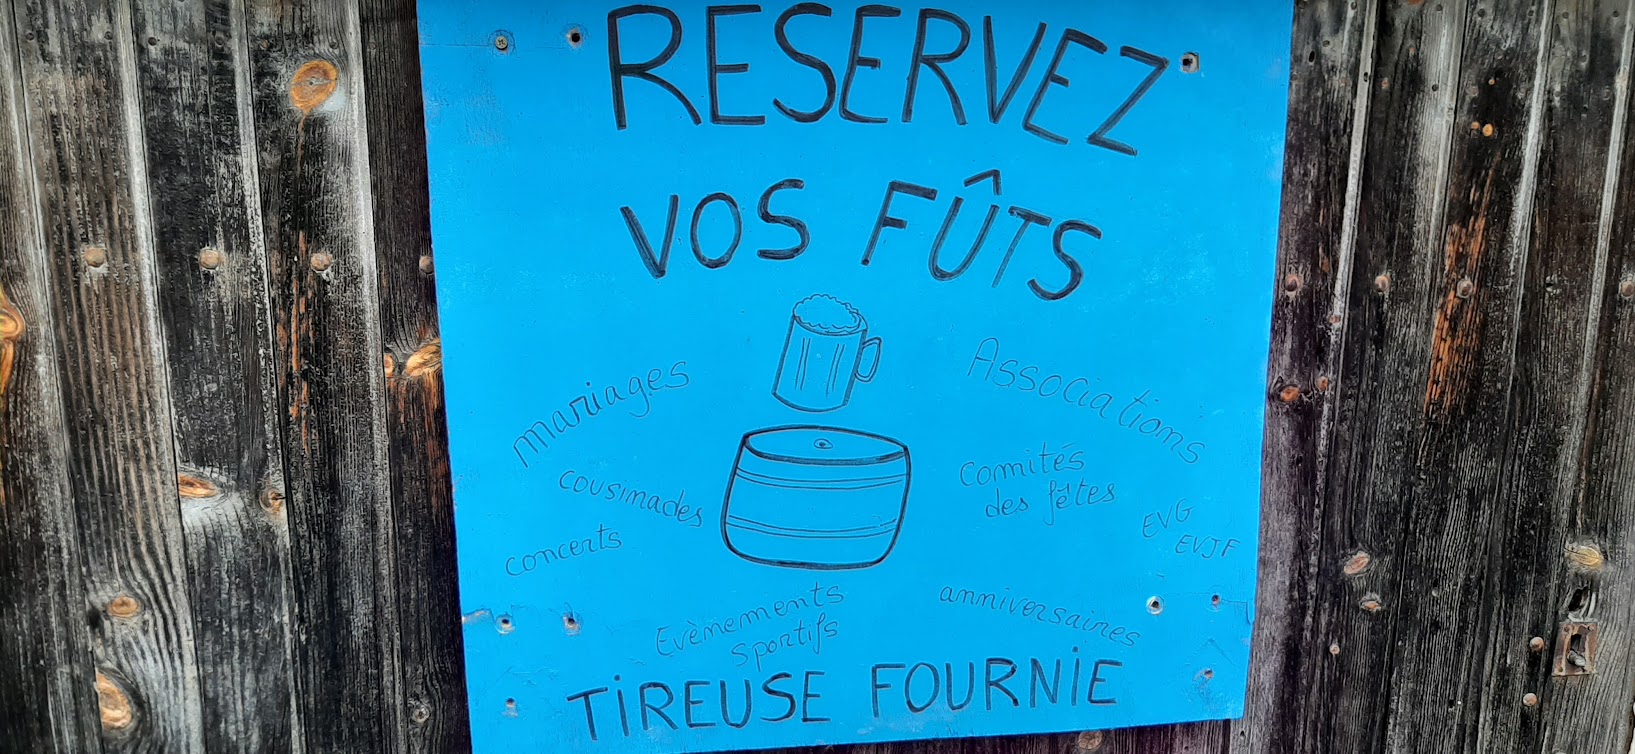 RESERVEZ
VOS FÛTS
mariages
Associations
cousinades
comités
des fêtes
EVG
EVJF
concerts
Evènements
sportifs
anniversaires
TiREUSE FOURNiE